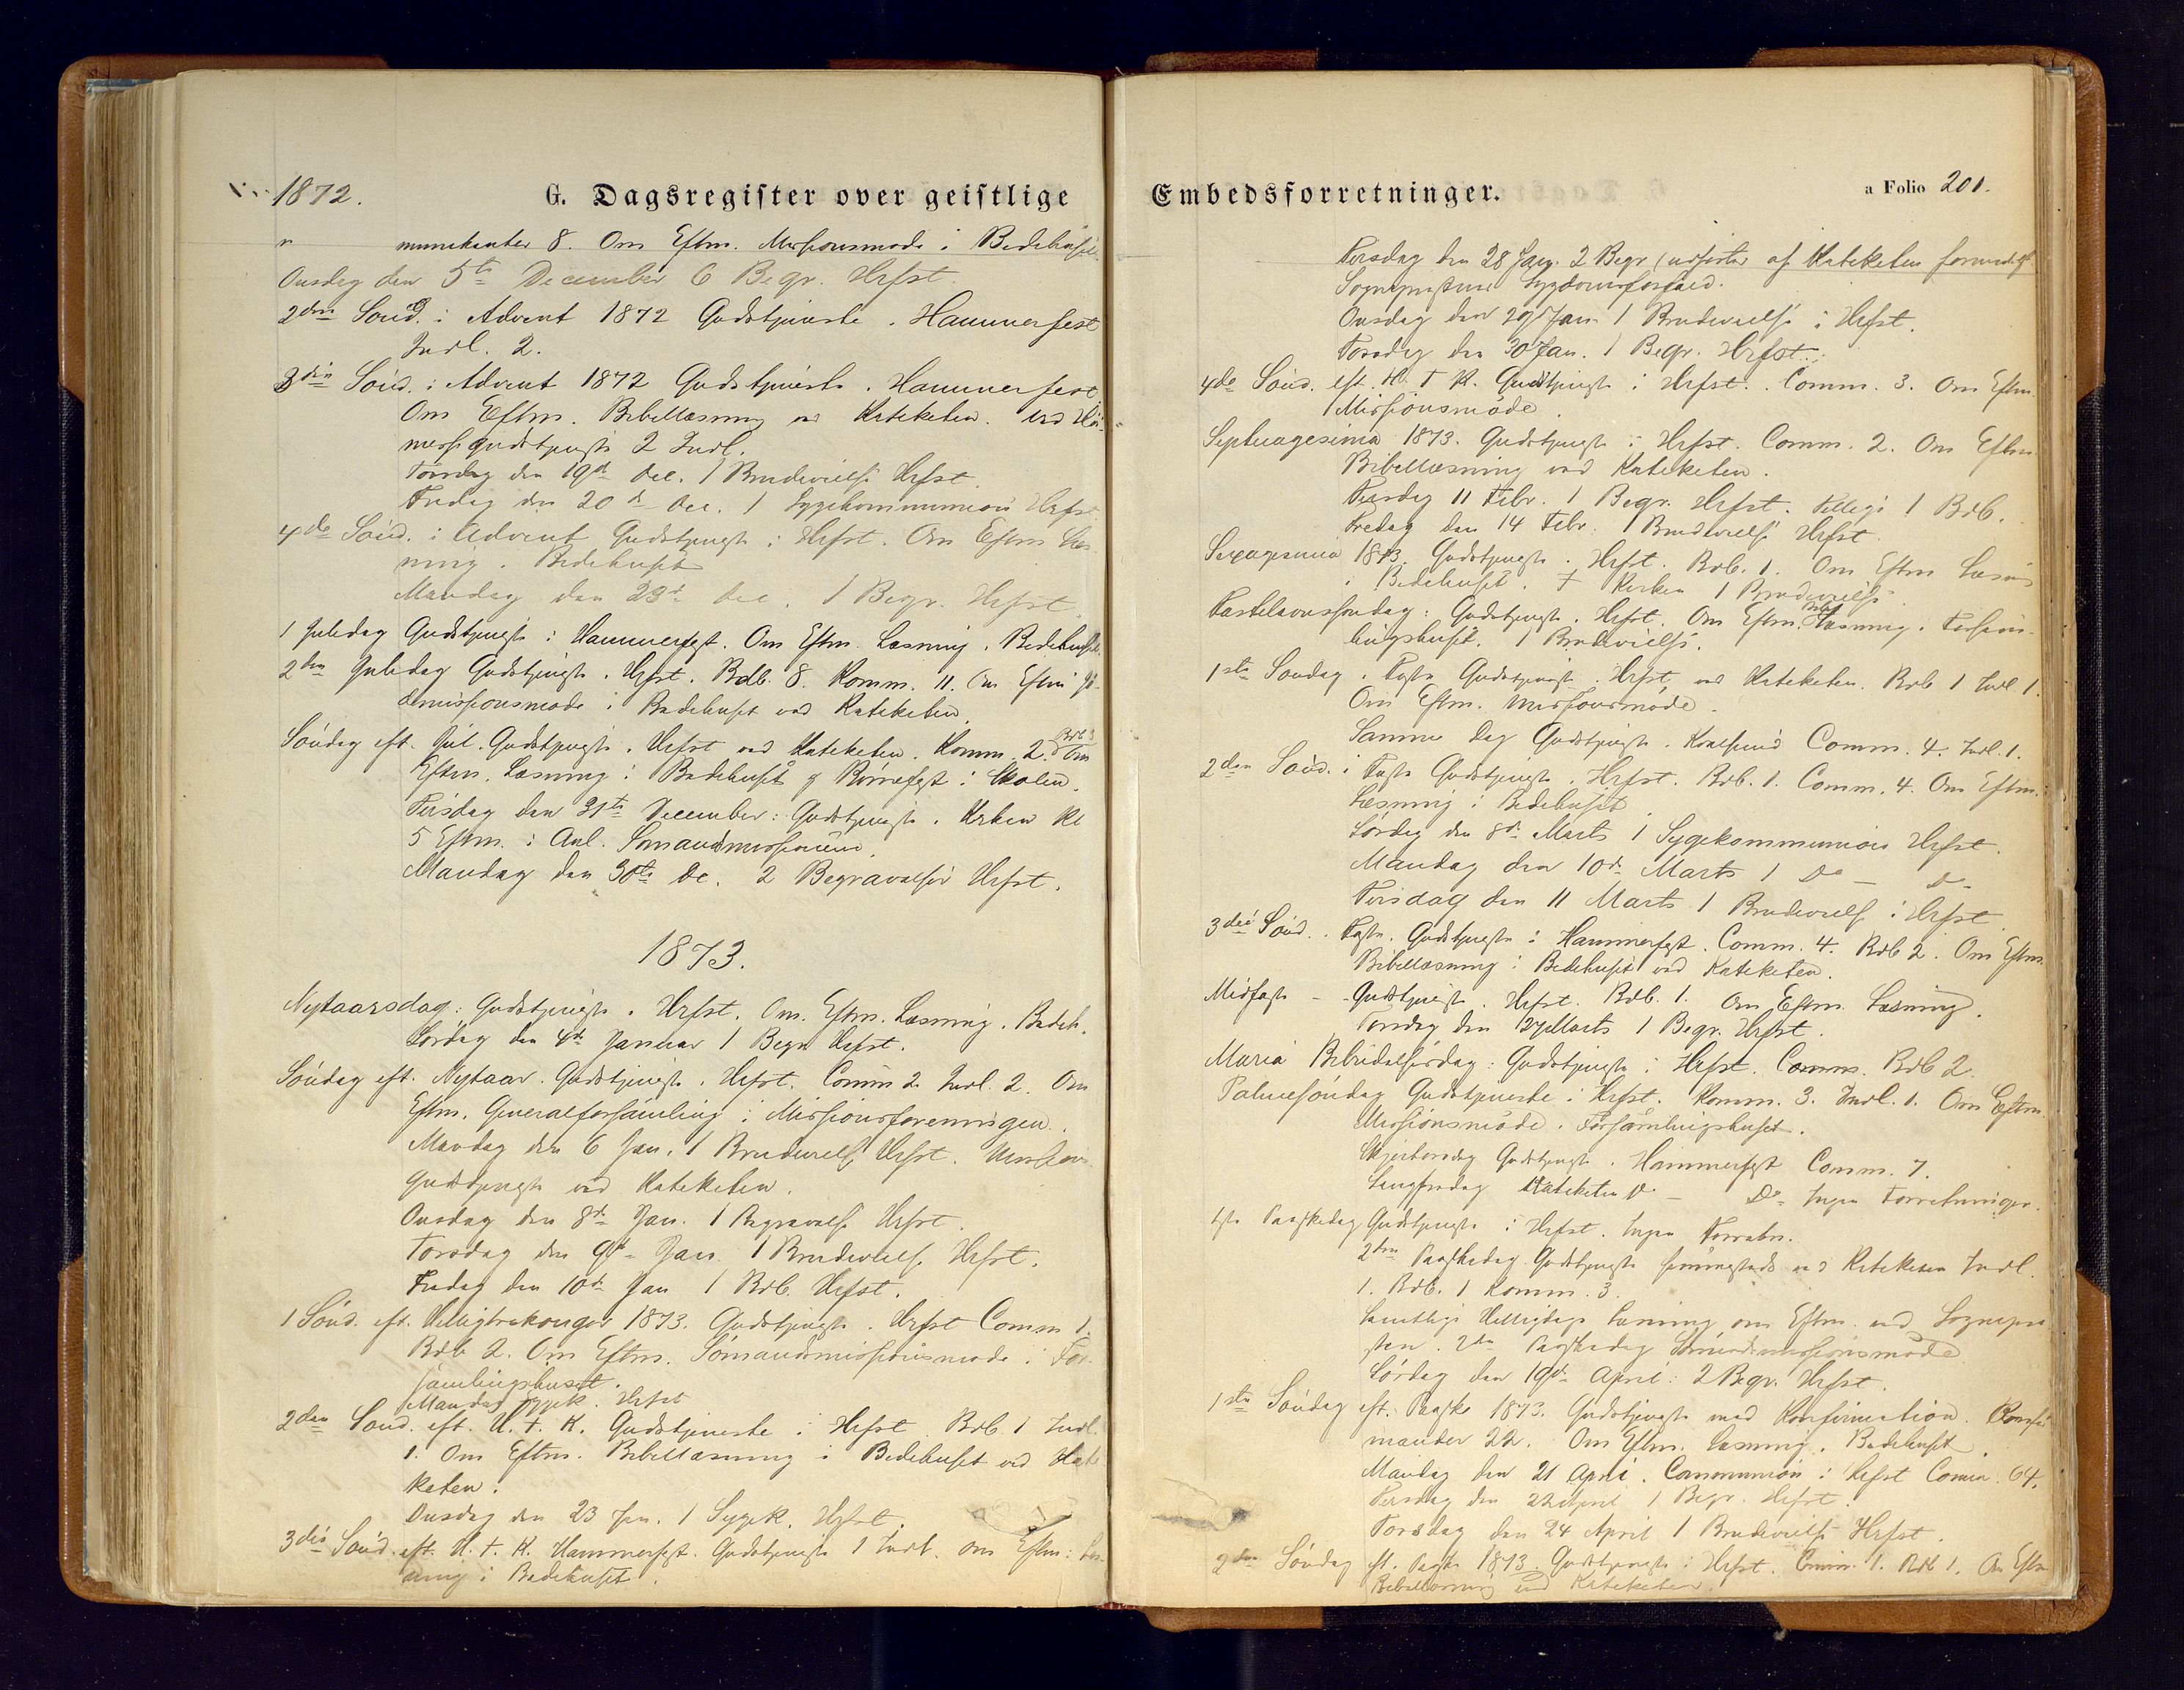 1872.
G. Dagsregister over geistlige
munikanter 8. Om Eftm. Missionsmøde i Bedehuset.
Onsdag den 5te December 6 Begr. Hrfst.
2den Sønd. i Advent 1872 Gudstjeneste i Hammerfest
Indl. 2.
3die Sønd. i Advent 1872 Gudstjeneste i Hammerfest
Om Eftm. Bibellæsning ved Kateketen. Ved Høi-
messegudstjeneste 2 Indl.
Torsdag den 19de Dec. 1 Brudevielse Hrfst.
Fredag den 20de Dec. 1 Sygekommunion Hrfst.
4de Sønd. i Advent Gudstjeneste i Hrfst. Om Eftm Læs-
ning i Bedehuset
Mandag den 23de Dec. 1 Begr. Hrfst.
1 Juledag Gudstjeneste i Hammerfest. Om Eftm. Læsning i Bedehuset.
2den Juledag Gudstjeneste i Hrfst. Bdb. 8. Komm. 11. Om Eftm
missionsmøde i Bedehuset ved Kateketen.
Søndag eft. Jul. Gudstjeneste i Hrfst ved Kateketen. Komm. 2. Om
Eftm. Læsning i Bedehuset og Børnefest i Skolen.
Tirsdag den 31te December: Gudstjeneste i Kirken Kl
5 Eftm. i Anl. Sømandsmissionen.
Mandag den 30te De. 2 Begravelser Hrfst.
1873.
Nytaarsdag: Gudstjeneste i Hrfst. Om. Eftm. Læsning i Bedeh.
Lørdag den 4de Januar 1 Begr. Hrfst.
Søndag eft. Nytaar. Gudstjeneste i Hrfst. Comm 2. Indl. 2. Om
Eftm. Generalforsamling i Missionsforeningen.
Mandag den 6 Jan. 1 Brudevielse Hrfst. Missions
gudstjeneste ved Kateketen.
Onsdag den 8de Jan. 1 Begravelse Hrfst.
Torsdag den 9de Jan. 1 Brudevielse Hrfst.
Fredag den 10de Jan 1 Bdb. Hrfst.
1 Sønd. eft. Helligtrekonger 1873. Gudstjeneste i Hrfst Comm 1.
Bdb 2. Om Eftm. Sømandsmissionsmøde i For-
samlingshuset.
Mandag Sygek. Hrfst
2den Sønd. eft. H. t. K. Gudstjeneste i Hrfst Bdb 1 Indl.
1. Om Eftm. Bibellæsning i Bedehuset ved Kate
keten.
Onsdag den 23 Jan. 1 Sygek. Hrfst.
3die Sønd. eft. H. t. K. Hammerfest. Gudstjeneste 1 Indl. om Eftm: Læs-
ning i Bedehuset.
Embedsforretninger.
a Folio 201.
Tirsdag den 28 Jan. 2 Begr. (udførte af Kateketen formedelst
Sognepræstens Sygdomsforfald.
Onsdag den 29 Jan 1 Brudevielse i Hrfst.
Torsdag den 30 Jan. 1 Begr. Hrfst.
4de Sønd. eft. H. T K. Gudstjeneste i Hrfst. Comm. 3. Om Eftm.
Missionsmøde.
Septuagesima 1873. Gudstjeneste i Hrfst. Comm. 2. Om Eftm
Bibellæsning ved Kateketen.
Tirsdag 11 Febr. 1 Begr. Hrfst. 1 Bdb.
Fredag den 14 Febr. 1 Brudevielse Hrfst
Sexagesima 1873. Gudstjeneste i Hrfst. Bdb. 1. Om Eftm Læsning
i Bedehuset. I Kirken 1 Brudevielse
Fastelavnssøndag: Gudstjeneste i Hrfst. Om Eftm. Læsning i Forsam-
lingshuset. 1 Brudevielse.
1ste Søndag i Faste Gudstjeneste i Hrfst. ved Kateketen. Bdb 1 Indl. 1.
Om Eftm. Missionsmøde.
Samme Dag Gudstjeneste i Kvalsund Comm. 4. Indl. 1.
2den Sønd. i Faste Gudstjeneste i Hrfst. Bdb. 1. Comm. 4. Om Eftm.:
Læsning i Bedehuset
Lørdag den 8de Marts 1 Sygekommunion Hrfst.
Mandag den 10de Marts 1 Do — Do
Tirsdag den 11 Marts 1 Brudevielse i Hrfst
3die Sønd. i Faste. Gudstjeneste i Hammerfest. Comm. 4. Bdb 2. Om Eftm.
Bibellæsning i Bedehuset ved Kateketen.
Midfaste – Gudstjeneste i Hrfst. Bdb. 1. Om Eftm. Læsning.
Torsdag den Marts 1 Begr. Hrfst.
Maria Bebudelsesdag: Gudstjeneste i Hrfst. Comm. Bdb 2.
Palmesøndag Gudstjeneste i Hrfst. Komm. 3. Indl. 1. Om Eftm.
Missionsmøde i Forsamlingshuset.
Skjertorsdag Gudstjeneste i Hammerfest Comm. 7.
Langfredag Kateketen Do — Do Ingen Forretninger.
1ste Paaskedag Gudstjeneste i Hrfst. Ingen Forretn.
2den Paaskedag Gudstjeneste sammesteds ved Kateketen Indl.
1. Bdb. 1 Komm. 3.
Samtlige Helligdage Læsning om Eftm. ved Sognepræ
sten. 2den Paaskedag Sømandsmissionsmøde
Lørdag den 19de April: 2 Begr. Hrfst.
1ste Søndag eft. Paaske 1873. Gudstjeneste med Konfirmation. Konfir
mander 22. Om Eftm. Læsning i Bedehuset.
Mandag den 21 April. Communion i Hrfst Comm. 64.
Tirsdag den 22 April 1 Begr. Hrfst.
Torsdag den 24 April 1 Brudevielse Hrfst.
2den Søndag eft. Paaske 1873. Gudstjeneste i Hrfst. Comm. 1. Bdb 1. Om Eftm
Bibellæsning ved Kateketen.